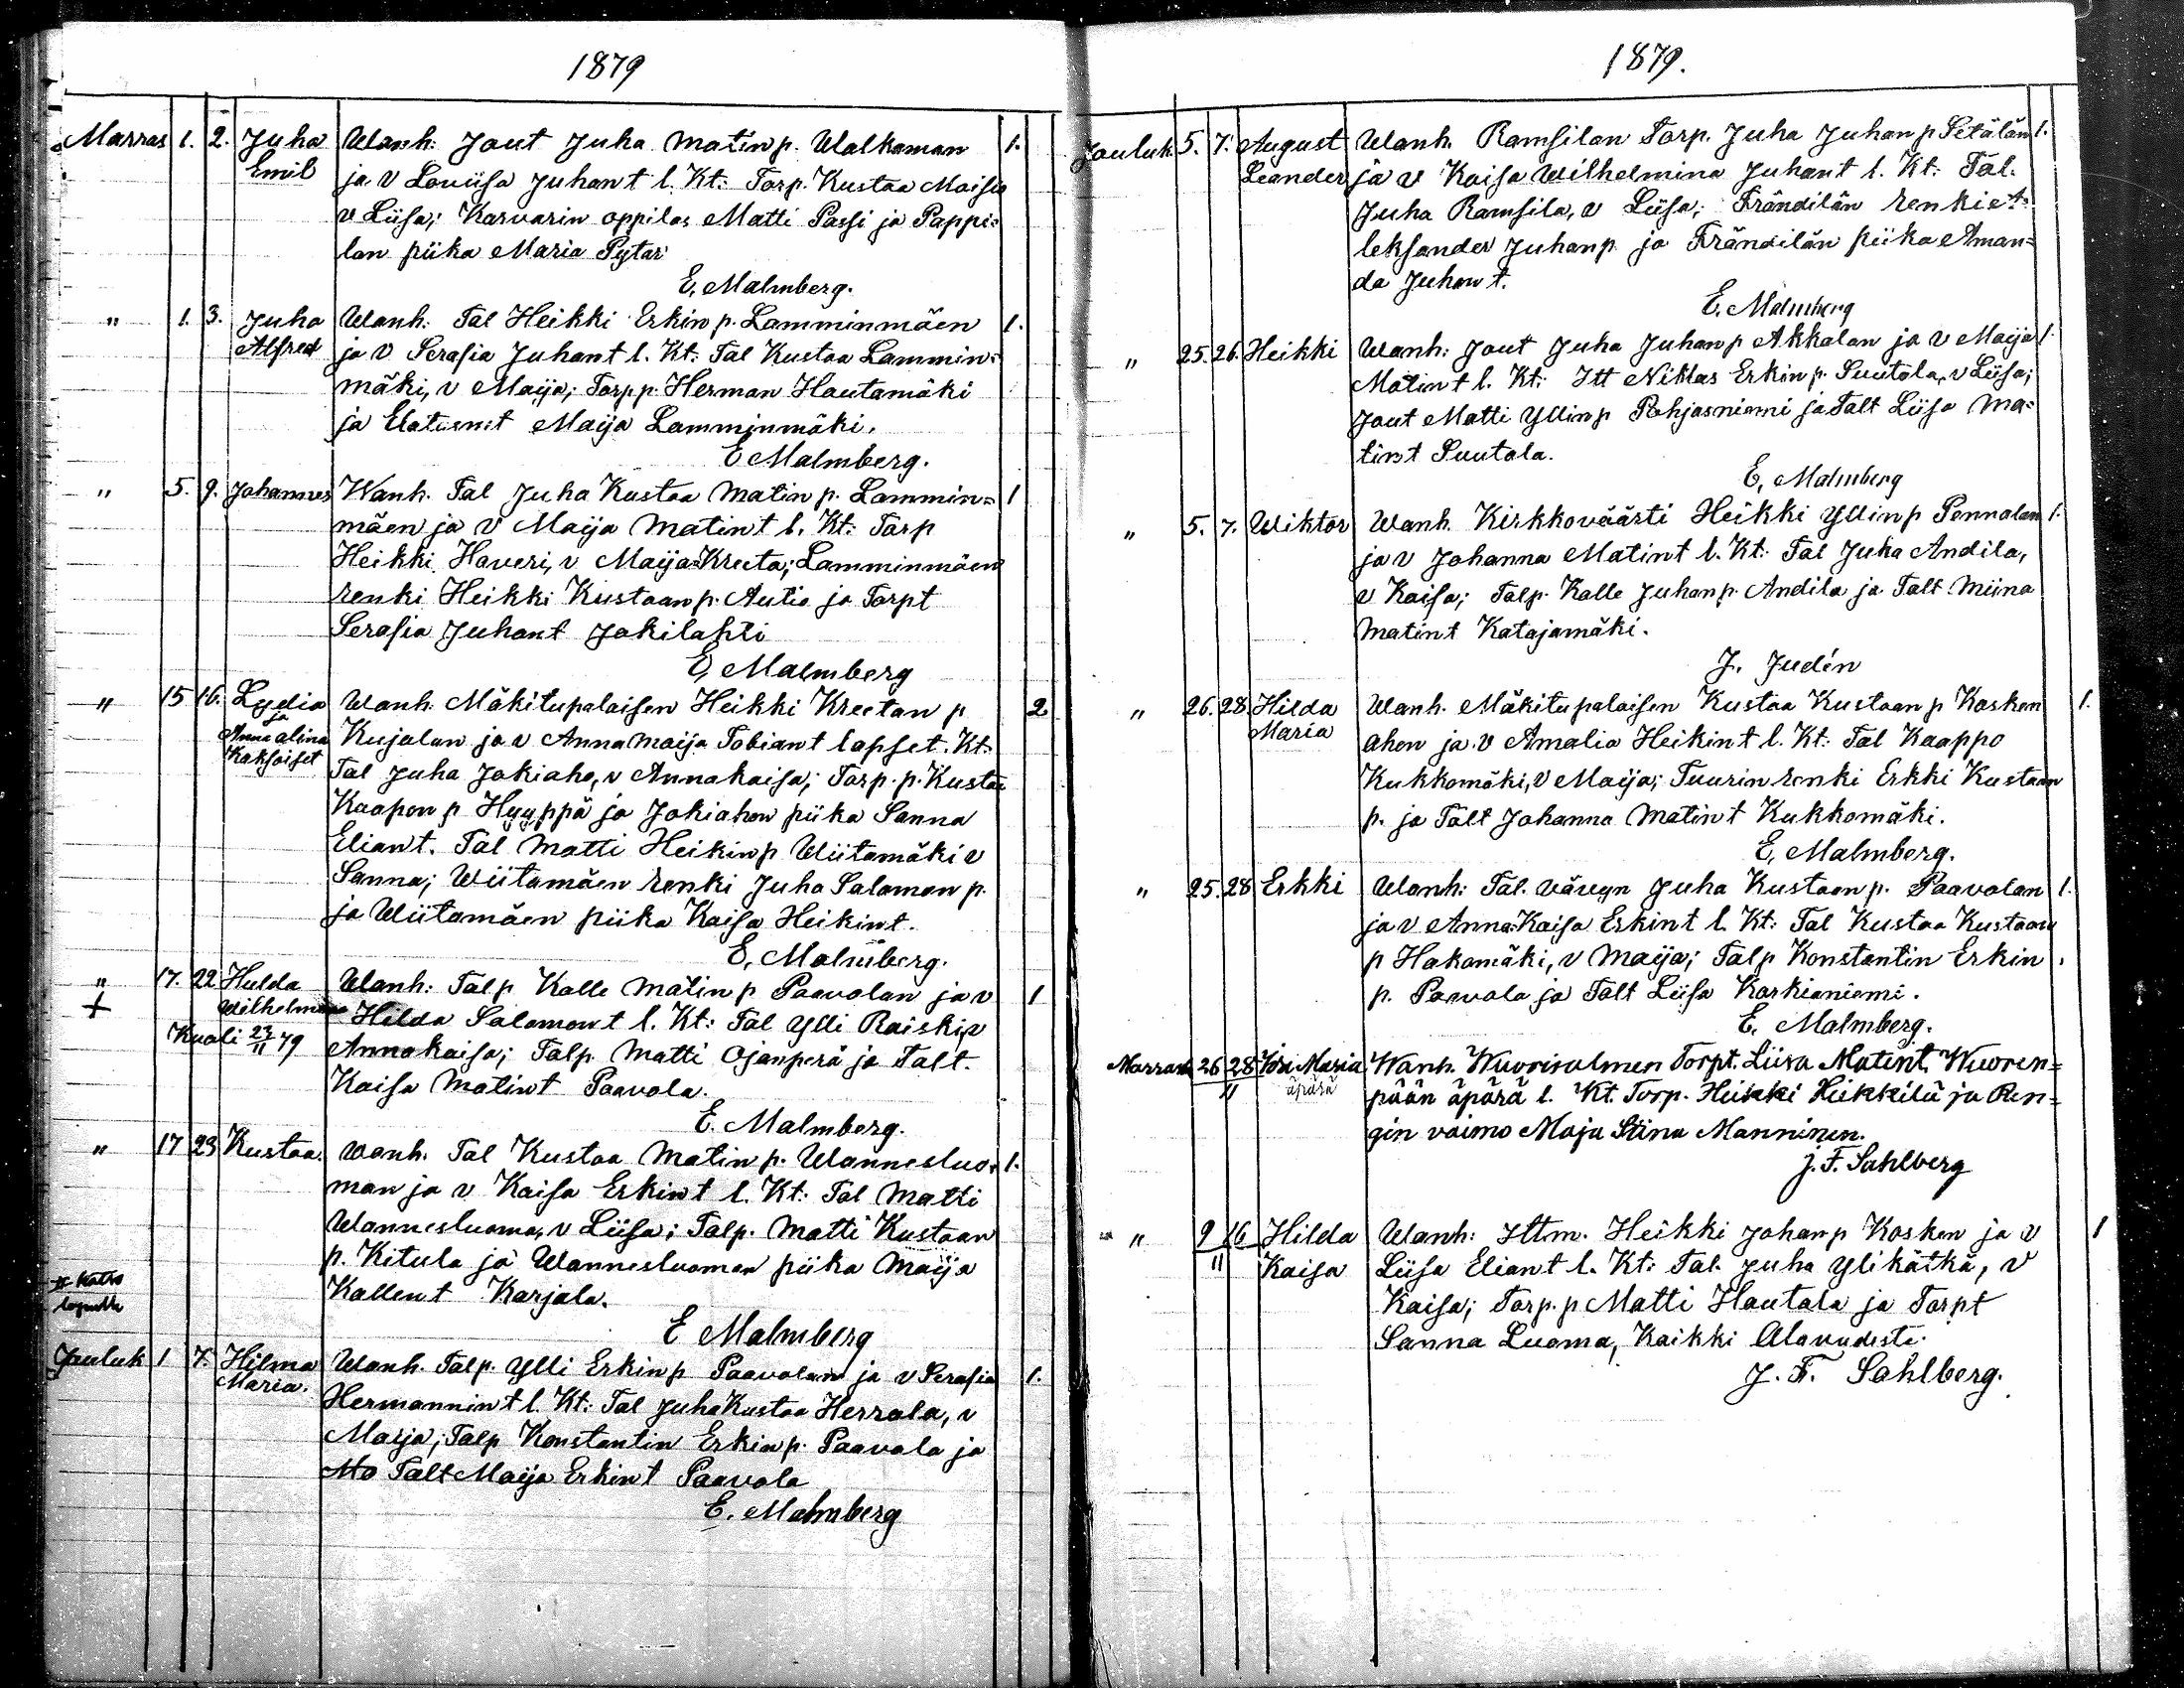 1879
Marras 1. 2. Juha Wanh: Jout Juha Matinp. Walkaman 1.
Emil ja v Loviisa Juhant l. Kt: Torp. Kustaa Maisu
v Liisa; Karvarin oppilas Matti Passi ja Pappi=
lan piika Maria Pytar
E. Malmberg.
" 1. 3. Juho Wanh: Tal Heikki Erkin p. Lamminmäen 1.
Alfred ja v Serafia Juhant l. Kt: Tal Kustaa Lammin=
mäki, v Maija; Torp p. Herman Hautamäki
ja Maija Lamminmäki.
E Malmberg.
" 5. 9. Johannes Wanh. Tal Juha Kustaa Matin p. Lammin= 1
mäen ja v Maija Matint l. Kt: Torp
Heikki Haveri, v Maija Kreeta; Lamminmäen
renki Heikki Kustaanp. Autio ja Torpt
Serafia Juhant Jokilahti
E, Malmberg
" 15 16. Lydia Wanh: Mäkitupalaisen Heikki Kreetan p 2
ja
Anna alina Kujalan ja v Anna Maija Tobiant lapset. Kt:
Kaksoiset Tal Juha Jokiaho, v Annakaisa; Torp. p. Kustaa
Kaapon p Hyyppä ja Jokiahon piika Sanna
Eliant. Tal Matti Heikinp Wiitamäki v
Sanna; Wiitamäen renki Juha Salamon p.
ja Wiitamäen piika Kaisa Heikint.
E, Malmberg.
" 17. 22 Hulda Wanh: Talp Kalle Matin p Paavolan ja v 1
+ Wilhelmina Hilda Salamont l. Kt: Tal Ylli Raiski, v
Kuoli 23/11 79 Annakaisa; Talp. Matti Ojanperä ja Talt.
Kaisa Matint Paavola.
E. Malmberg.
" 17 23 Kustaa. Wanh. Tal Kustaa Matin p. Wannesluo= 1.
man ja v Kaisa Erkint l. Kt: Tal Matti
Wannesluoma, v Liisa; Talp. Matti Kustaan
p. Kitula ja Wannesluoman piika Maija
Kallent Karjala.
E Malmberg
Katso
Jouluk 1 7. Hilma Wanh. Talp. Ylli Erkinp Paavolan ja v Serafia 1.
Maria. Hermannint l. Kt: Tal Juha Kustaa Herrala, v
Marja; Talp Konstantin Erkinp. Paavola ja
Talt Maija Erkint Paavola
E. Malmberg
1879.
Jouluk 5. 7. August Wanh. Ramsilan Torp. Juha Juhan p Setälän 1.
Leander ja v Kaisa Wilhelmina Juhant l. Kt: Tal.
Juha Ramsila, v Liisa; Frändilän renki A=
leksander Juhanp ja Frändilän piika Aman=
da Juhan t.
E. Malmberg
" 25. 26. Heikki Wanh: Jout Juha Juhanp Akkalan ja v Maija 1.
Matint l. Kt: Itt Niklas Erkin p. Suutola, v Liisa;
Jout Matti Yllinp Pohjasniemi ja Talt Liisa Ma=
tint Suutala.
E, Malmberg
" 5. 7. Wiktor Wanh. Kirkkoväärti Heikki Yllinp Pennalan 1.
ja v Johanna Matint l. Kt: Tal Juha Andila,
v Kaisa; Talp. Kalle Juhanp. Andila ja Talt. Miina
Matint Katajamäki.
J. Judén
" 26. 28. Hilda Wanh. Mäkitupalaisen Kustaa Kustaan p Kosken 1.
Maria ahon ja v Amalia Heikint l. Kt: Tal Kaappo
Kukkomäki, v Maija; Tuurin renki Erkki Kustaan
p. ja Talt Johanna Matint Kukkomäki.
E, Malmberg.
" 25. 28 Erkki Wanh: Tal. vävyn Juha Kustaan p. Paavolan 1.
ja v Anna Kaisa Erkint l. Kt: Tal Kustaa Kustaan
p Hakamäki, v Maija; Talp Konstantin Erkin
p. Paavola ja Talt Liisa Karkianiemi.
E. Malmberg.
Marrask 26 28/11 Ida Maria Wanh. Wuorisalmen Torpt. Liisa Matint Wuoren=
äpärä pään äpärä l. Kt. Torp. Heikki Heikkilä ja Ren=
gin vaimo Maja Stina Manninen.
J. F. Sahlberg
" 9 16/11 Hilda Wanh: Ittm. Heikki Johanp Kosken ja v 1
Kaisa Liisa Eliant l. Kt: Tal. Juha Ylikätkä, v
Kaisa; Torp. p Matti Hautala ja Torpt
Sanna Luoma, Kaikki Alavudesta.
J. F. Sahlberg.